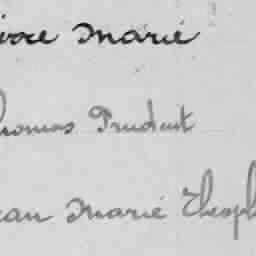 Marié
Thomas Prudent
ean Marié Theoph